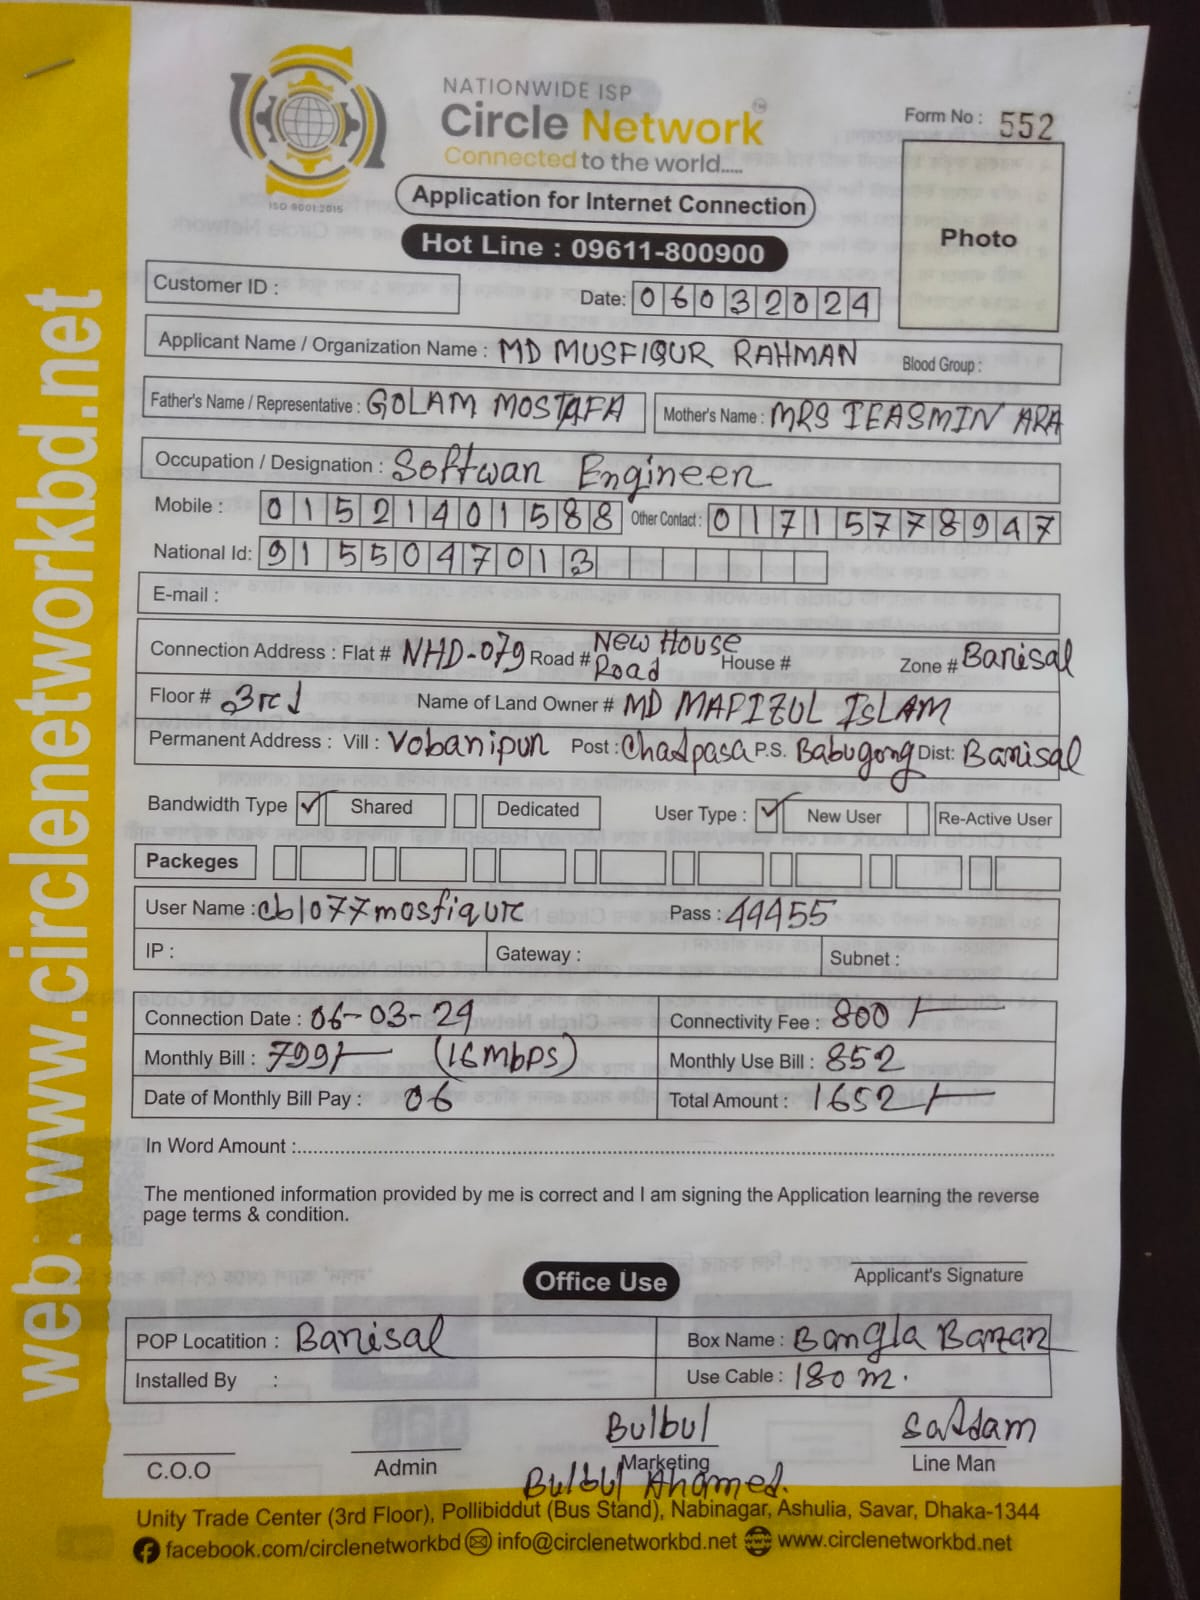 NATIONWIDE ISP
Circle Network
Connected to the world.....
ISO 9001:2015
Form No : 552
Photo
Application for Internet Connection
Hot Line : 09611-800900
Customer ID :
Date: 06032024
Applicant Name / Organization Name : MD MUSFIQUR RAHMAN Blood Group :
Father's Name / Representative : GOLAM MOSTAFA Mother's Name : MRS IEASMIN ARA
Occupation / Designation : Softwar Engineer
Mobile : 01521401588 Other Contact : 01715778947
National Id: 9155047013
E-mail :
Connection Address : Flat # NHD-079 Road # New House Road House # Zone # Barisal
Floor # 3rd Name of Land Owner # MD MAFIZUL ISLAM
Permanent Address : Vill : Vobanipur Post : Chadpasa P.S. Babugong Dist: Barisal
Bandwidth Type ✓ Shared Dedicated User Type : ✓ New User Re-Active User
Packeges
User Name : cb1077mosfiqur Pass : 44455
IP : Gateway : Subnet :
Connection Date : 06-03-24 Connectivity Fee : 800/-
Monthly Bill : 799/- (16mbps) Monthly Use Bill : 852
Date of Monthly Bill Pay : 06 Total Amount : 1652/-
In Word Amount :
The mentioned information provided by me is correct and I am signing the Application learning the reverse
page terms & condition.
Applicant's Signature
Office Use
POP Locatition : Barisal Box Name : Bangla Bazar
Installed By : Use Cable : 180 m.
Bulbul Saddam
C.O.O Admin Marketing Line Man
Bulbul Ahamed.
Unity Trade Center (3rd Floor), Pollibiddut (Bus Stand), Nabinagar, Ashulia, Savar, Dhaka-1344
facebook.com/circlenetworkbd info@circlenetworkbd.net www.circlenetworkbd.net
web: www.circlenetworkbd.net